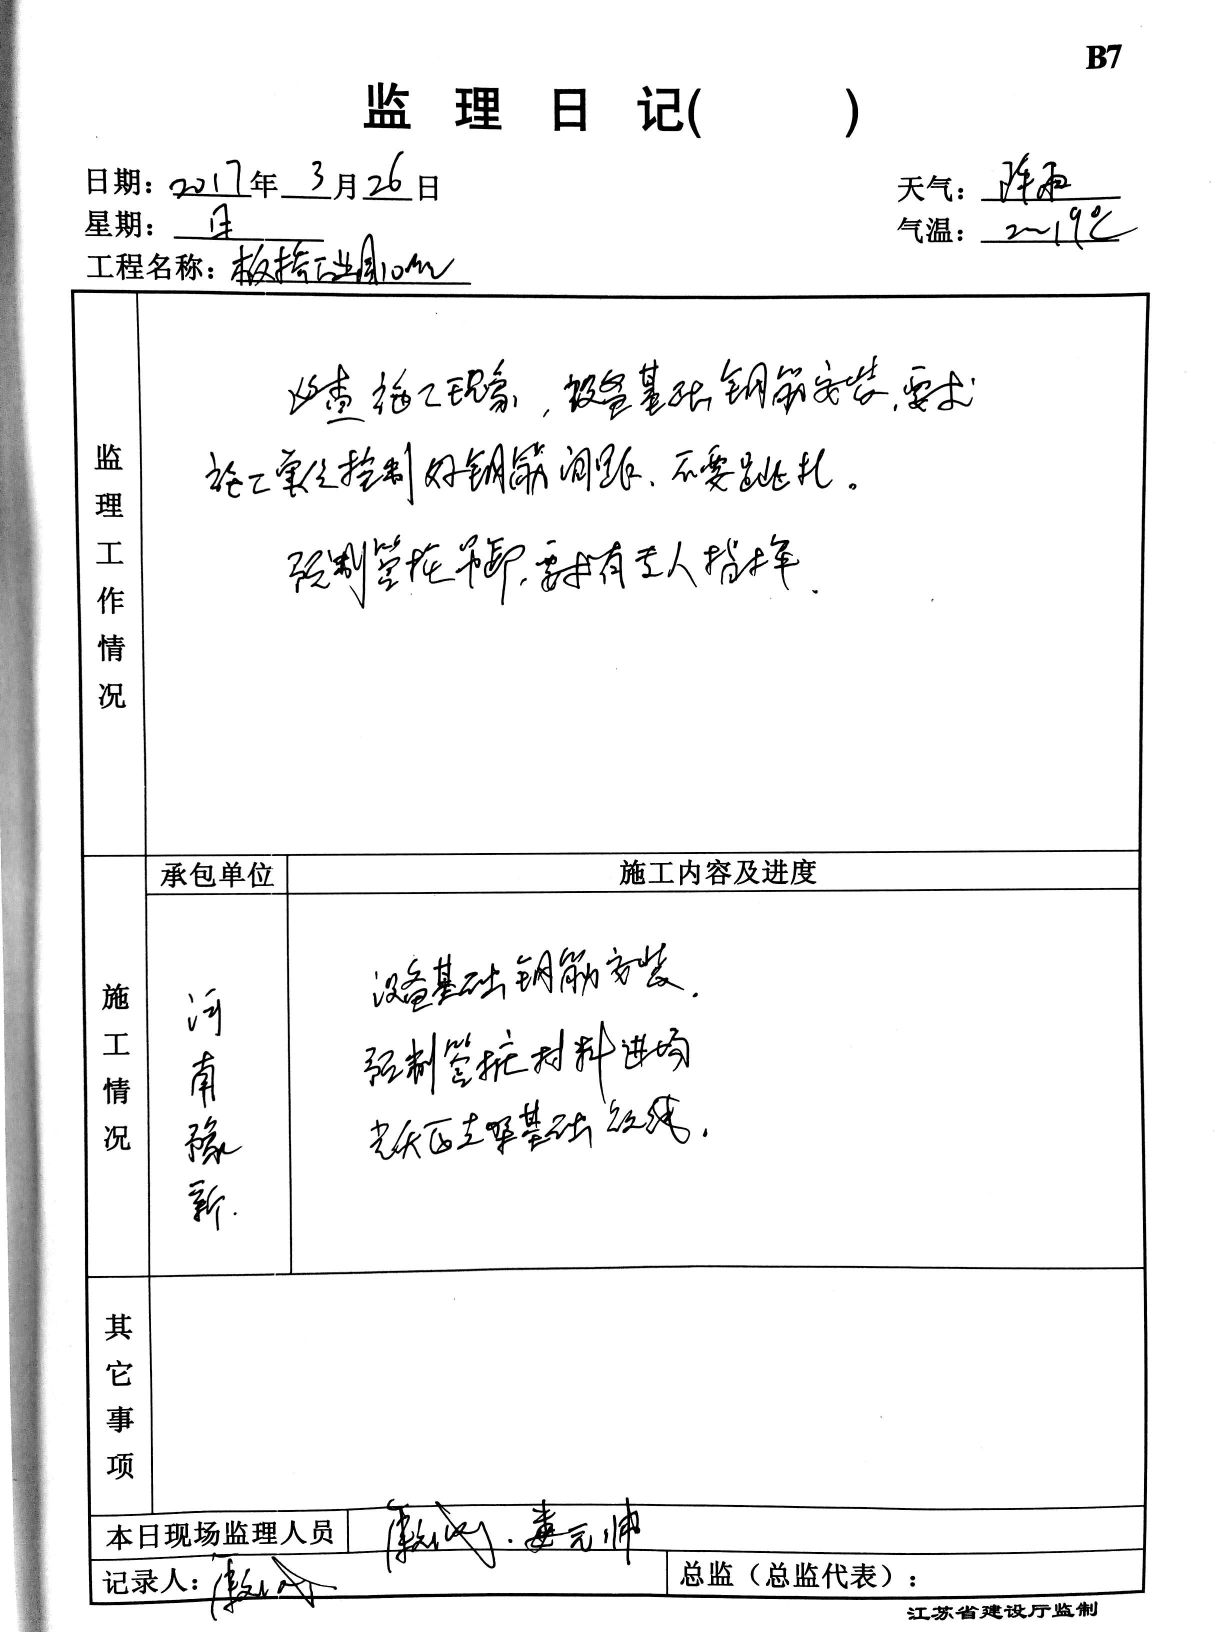 B7
监 理 日 记( )
日期: 2017年 3月26日
天气: 阵雨
星期: 日
气温: 2~19℃
工程名称: 板桥
监理工作情况
检查施工现象,设备基础钢筋安装,要求
施工单位控制好钢筋间距、不要跳扎。
预制管桩吊卸,要求有专人指挥.
承包单位
施工内容及进度
施工情况
河南豫新.
设备基础钢筋安装.
预制管桩材料进场
光伏区支架基础放线.
其它事项
本日现场监理人员
娄元帅
记录人:
总监(总监代表):
江苏省建设厅监制